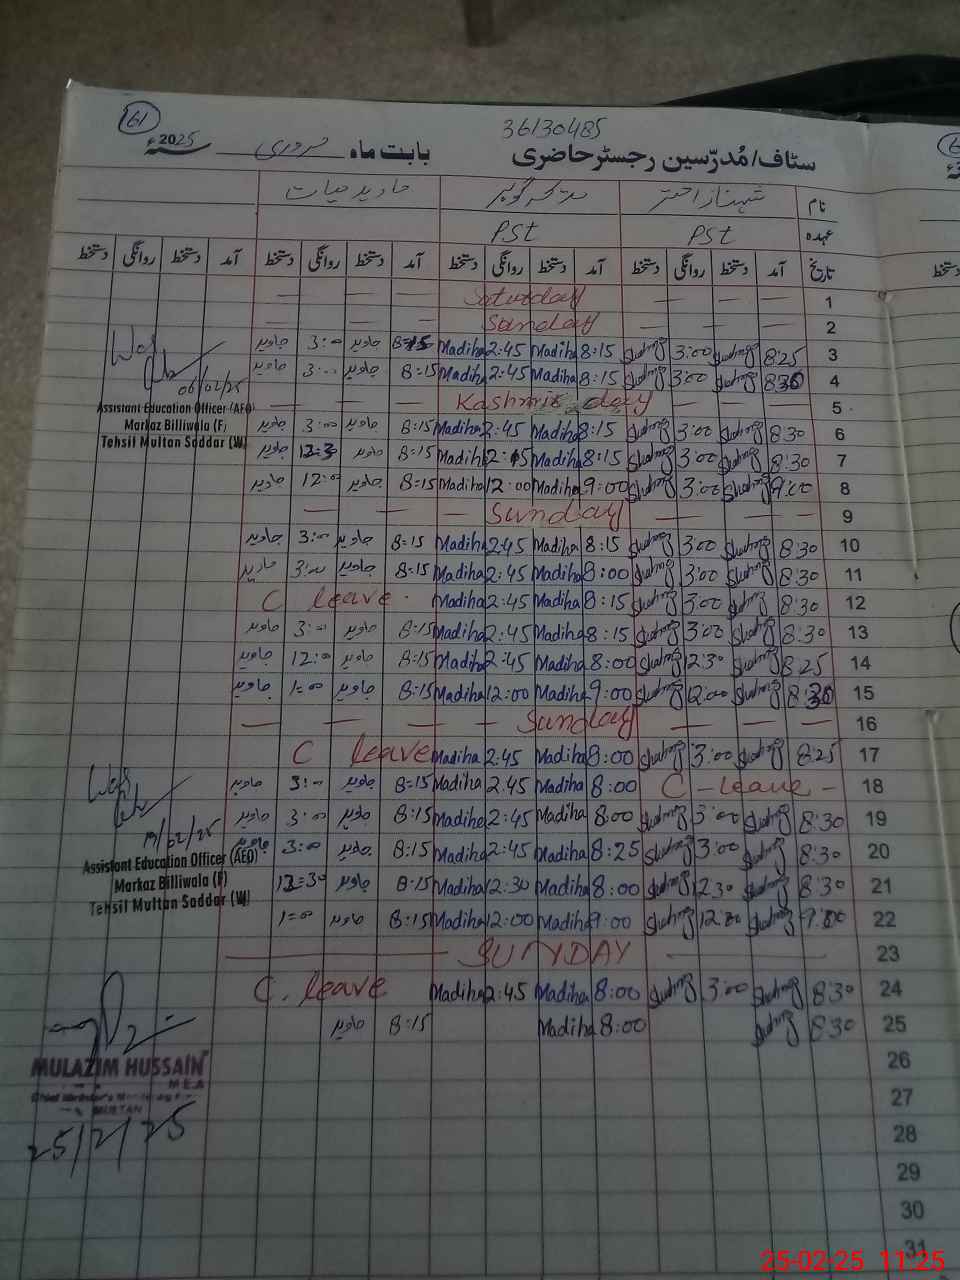 61
36130485
سٹاف/مُدرّسین رجسٹر حاضری بابت ماہ فروری 2025ء
نام شہناز اختر مدیحہ گوہر جاوید حیات
عہدہ PST PST
تاریخ آمد دستخط روانگی دستخط آمد دستخط روانگی دستخط آمد دستخط روانگی دستخط آمد دستخط روانگی دستخط
1 — — — Saturday — — —
2 — — — Sunday — — —
3 8:25 3:00 8:15 Madiha 2:45 Madiha 8:15 جاوید 3:00 جاوید
4 8:30 3:00 8:15 Madiha 2:45 Madiha 8:15 جاوید 3:00 جاوید
5 Kashmir day
6 8:30 3:00 8:15 Madiha 2:45 Madiha 8:15 جاوید 3:00 جاوید
7 8:30 3:00 8:15 Madiha Madiha 8:15 جاوید جاوید
8 9:00 3:00 9:00 Madiha 12:00 Madiha 8:15 جاوید 12:00 جاوید
9 — — Sunday — — —
10 8:30 3:00 8:15 Madiha 2:45 Madiha 8:15 جاوید 3:00 جاوید
11 8:30 3:00 8:00 Madiha 2:45 Madiha 8:15 جاوید 3:00 جاوید
12 8:30 3:00 8:15 Madiha 2:45 Madiha C leave
13 8:30 3:00 8:15 Madiha 2:45 Madiha 8:15 جاوید 3:00 جاوید
14 8:25 12:30 8:00 Madiha 2:45 Madiha 8:15 جاوید 12:00 جاوید
15 8:30 12:00 9:00 Madiha 12:00 Madiha 8:15 جاوید 1:00 جاوید
16 — — — Sunday — — —
17 8:25 3:00 8:00 Madiha 2:45 Madiha C leave
18 C - leave - 8:00 Madiha 2:45 Madiha 8:15 جاوید 3:00 جاوید
19 8:30 3:00 8:00 Madiha 2:45 Madiha 8:15 جاوید 3:00 جاوید
20 8:30 3:00 8:25 Madiha 2:45 Madiha 8:15 جاوید 3:00 جاوید
21 8:30 12:30 8:00 Madiha 12:30 Madiha 8:15 جاوید 12:30
22 9:00 12:00 9:00 Madiha 12:00 Madiha 8:15 جاوید 1:00
23 SUNDAY
24 8:30 3:00 8:00 Madiha 2:45 Madiha C. leave
25 8:30 8:00 Madiha 8:15 جاوید
26
27
28
29
30
31
06/02/25
Assistant Education Officer (AEO)
Markaz Billiwala (F)
Tehsil Multan Saddar (W)
19/02/25
Assistant Education Officer (AEO)
Markaz Billiwala (F)
Tehsil Multan Saddar (W)
MULAZIM HUSSAIN
M.E.A
MULTAN
25/2/25
دستخط
25-02-25 11:25